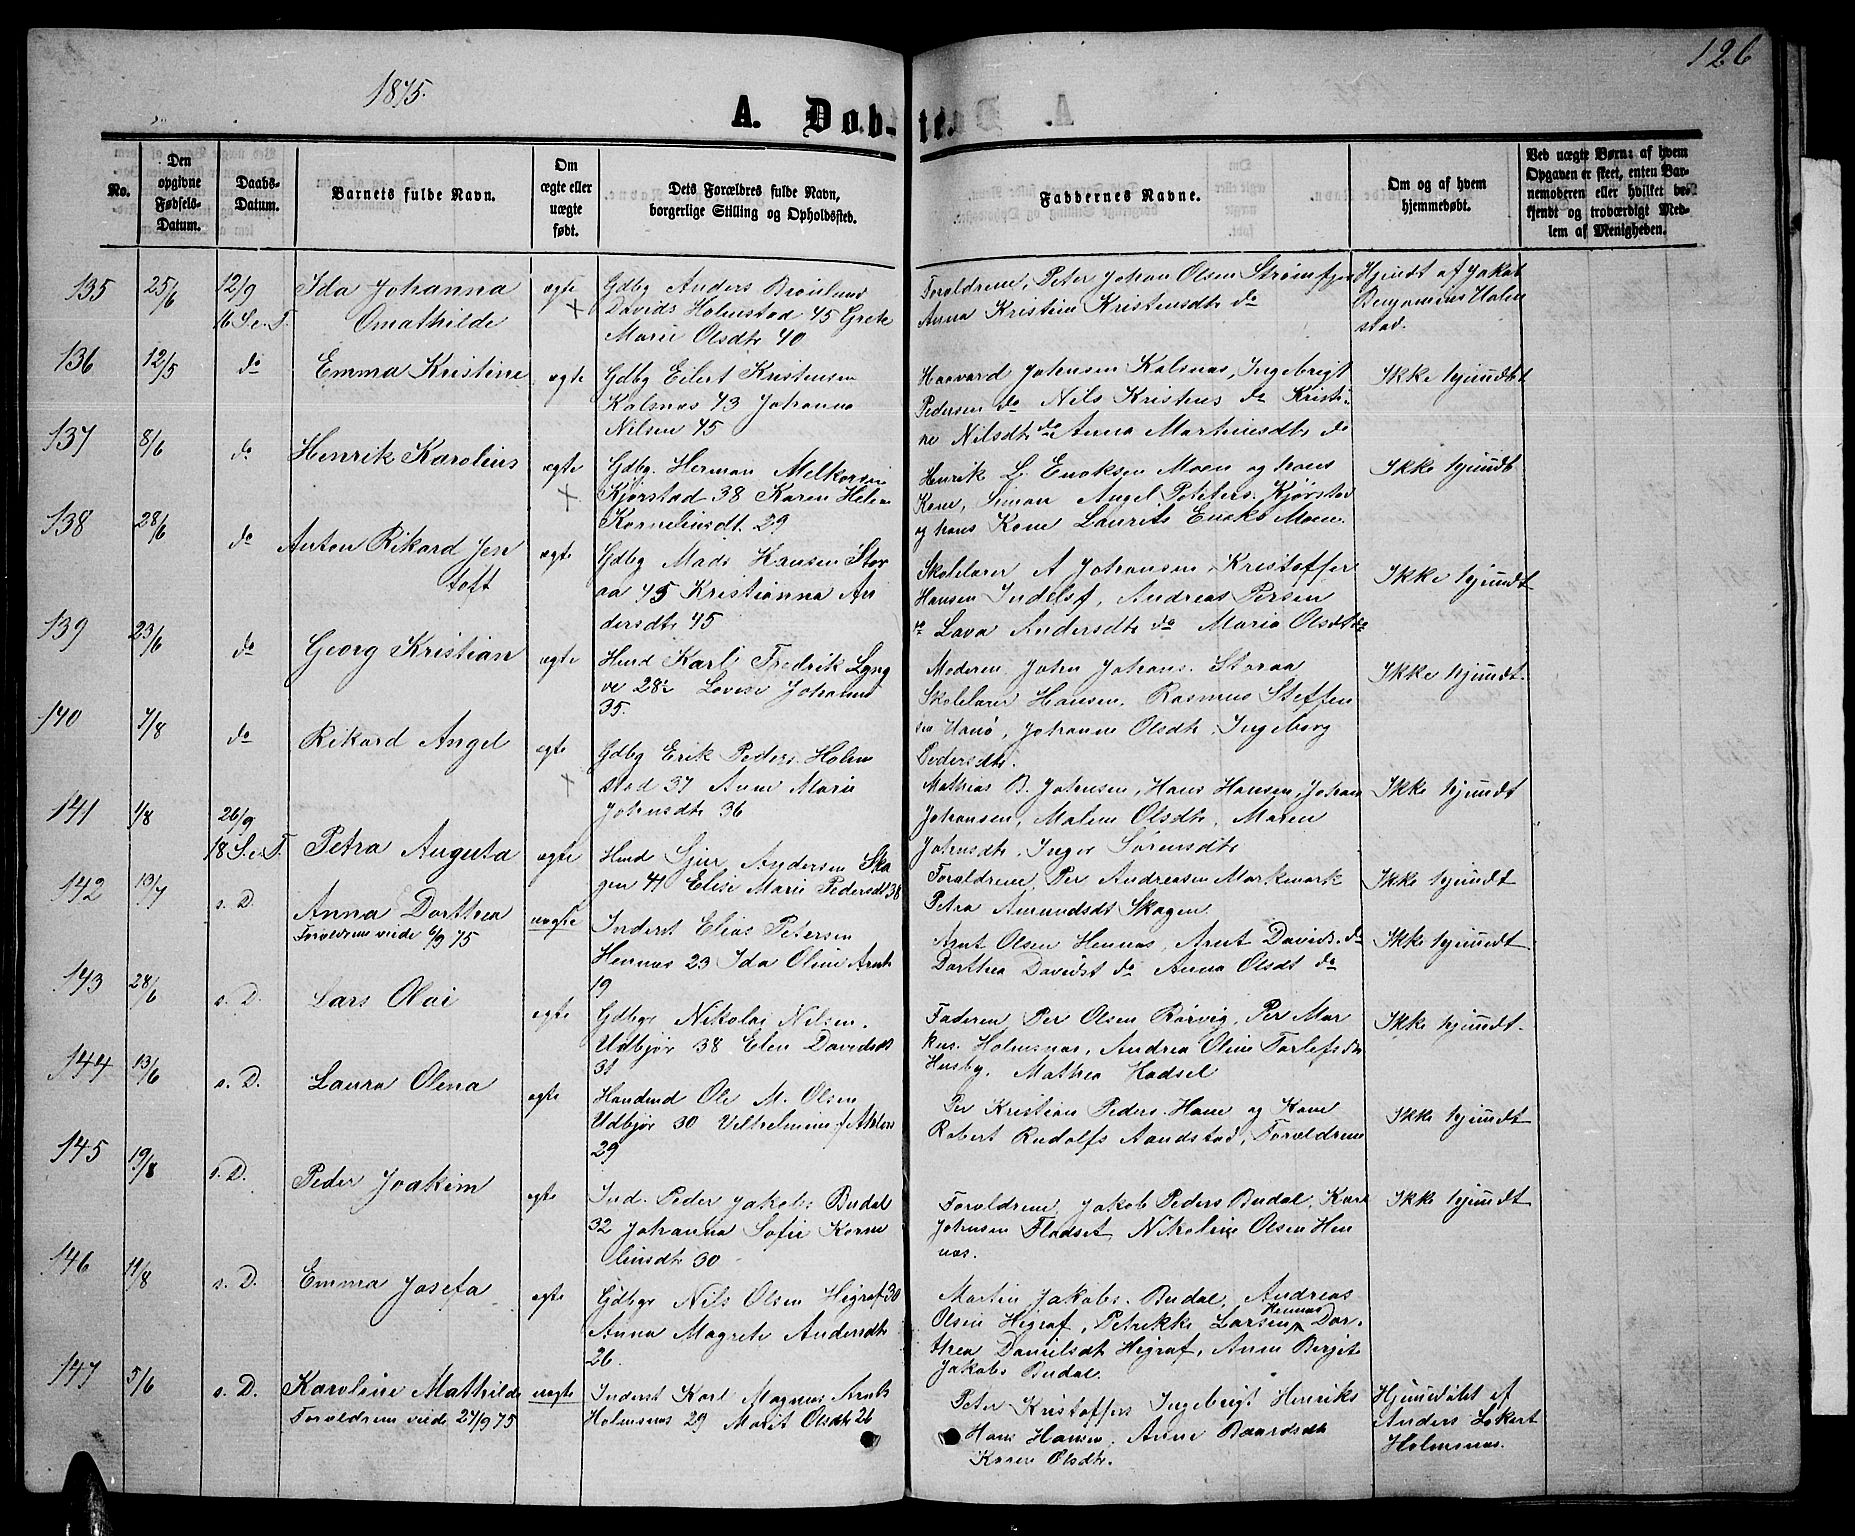 126
1875.
A. Døb-te.
No.
Den
opgivne
Fødsels-
Datum.
Daabs-
Datum.
Barnets fulde Navn.
Om
ægte eller
uægte
født.
Dets Forældres fulde Navn,
borgerlige Stilling og Opholdssted.
Faddernes Navne.
Om og af hvem
hjemmedøbt.
Ved uægte Børn: af hvem
Opgaven er skeet, enten Bar-
nemoderen eller hvilket be-
kjendt og troværdigt Med-
lem af Menigheden.
135 25/6 12/9 Ida Johanna ægte Gdbg Anders Brønlund
16 S. e. T. Omathilde Davids Holmstad 45 Grete
Marie Olsdtr 40
Forældrene, Peter Johan Olsen Strømfjor
Anna Kristine Kristensdtr do
Hjemdt af Jakob
Benjamins Holm
stad.
136 12/5 do Emma Kristine ægte Gdbg Eilert Kristensen
Kalsnas 43 Johanna
Nilsen 45
Haavard Johnsen Kalsnas, Ingebrigt
Pedersen do Nils Kristens do Kristi-
ne Nilsdtr do Anna Martinsdtr do
Ikke hjemdt
137 8/6 do Henrik Karolius ægte Gdbg. Herman Melkorsen
Kjørstad 38 Karen Helene
Korneliusdt. 29
Henrik L. Enoksen Moen og hans
Kone, Simon Angel Peters. Kjørstad
og hans Kone Laurits Enoks Moen.
Ikke hjemdt
138 28/6 do Anton Rikard Jen ægte Gdbg Mads Hansen Stor
toft aa 45 Kristianna An
dersdtr 45
Skolelærer A Johansen, Kristoffer
Hansen Indelsf, Andreas Persen
do Lava Andersdtr do Maria Olsdtr do
Ikke hjemdt
139 23/6 do Georg Kristian ægte Hmd Karl Fredrik Lyng
ve 28 Lovise Johanne
35.
Moderen, John Johans. Storaa
Skolelærer Hansen, Rasmus Steffen
sen Hanø, Johanne Olsdtr, Ingeborg
Pedersdtr.
Ikke hjemdt.
140 7/8 do Rikard Angel ægte Gdbg Erik Peders. Holm
stad 37 Anne Marie
Johnsdtr 36
Mathias B. Johnsen, Hans Hansen, Johan
Johansen, Malene Olsdtr, Maren
Johnsdtr, Inger Sørensdtr
Ikke hjemdt
141 1/8 26/9
18 S. e. T. Petra Augusta ægte Hmd Sjur Andersen Ska
gen 41 Elise Marie Pedersdt 38
Forældrene, Per Andreasen Markmark
Petra Amundsdt Skagen
Ikke hjemdt
142 13/7 s. D. Anna Dorthea uægte Inderst Elias Petersen
Forældrene viede 6/9 75 Hennas 23 Ida Oline Arnts
19
Arnt Olsen Hennas, Arnt Davids. do
Dorthea Davidsdt do Anna Olsdt do
Ikke hjemdt
143 28/6 s. D. Lars Olai ægte Gdbgr Nikolai Nilsen.
Udbjør 38 Elen Davidsdt
31
Faderen, Per Olsen Rørvig, Per Mar
kus. Holmsnas, Andrea Oline Torlefsdtr
Husby, Mathea Hadsel
Ikke hjemdt.
144 13/6 s. D. Laura Olena ægte Handlmd Ole M. Olsen
Udbjør 30 Vilhelmine f Ahlers
29
Per Kristian Peders. Hane og Kone
Robert Rudolfs Aandstad, Forældrene
Ikke hjemdt
145 19/8 s. D. Peder Joakim ægte Ind. Peder Jakobs Budal
32 Johanna Sofie Korne
liusdtr 30
Forældrene, Jakob Peders Budal, Karl
Johnsen Fladset, Nikoline Olsen Hen
nas.
Ikke hjemdt
146 14/8 s. D. Emma Josefa ægte Gdbgr Nils Olsen Higraf 30
Anna Magrete Andersdtr
26.
Martin Jakobs. Budal, Andreas
Olsen Higraf, Petrikke Larsen Hennas Dor-
thea Danielsdt Higraf, Anne Bergite
Jakobs Budal.
147 5/6 s. D. Karoline Mathilde uægte Inderst Karl Magnus Arnts
Forældrene viede 27/9 75 Holmsnas 29 Marit Olsdtr 26
Peter Kristoffers Ingebrigt Henriks
Hans Hansen, Anne Baardsdtr
Karen Olsdtr.
Hjemmedøbt af
Anders Lokert
Holmsnas.